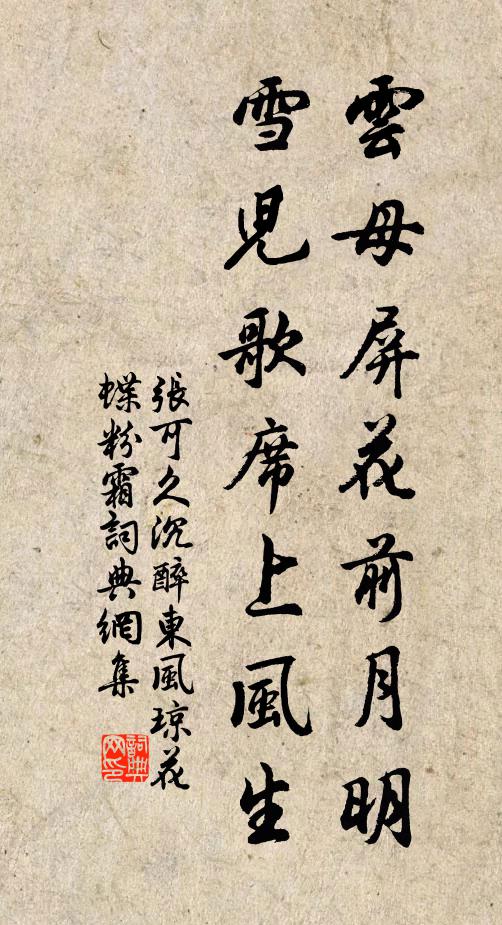 雲母屏花前月明
雪児歌席上風生
張可久沉醉東風琼花
蝶粉霜詞典網集
詞典
网印